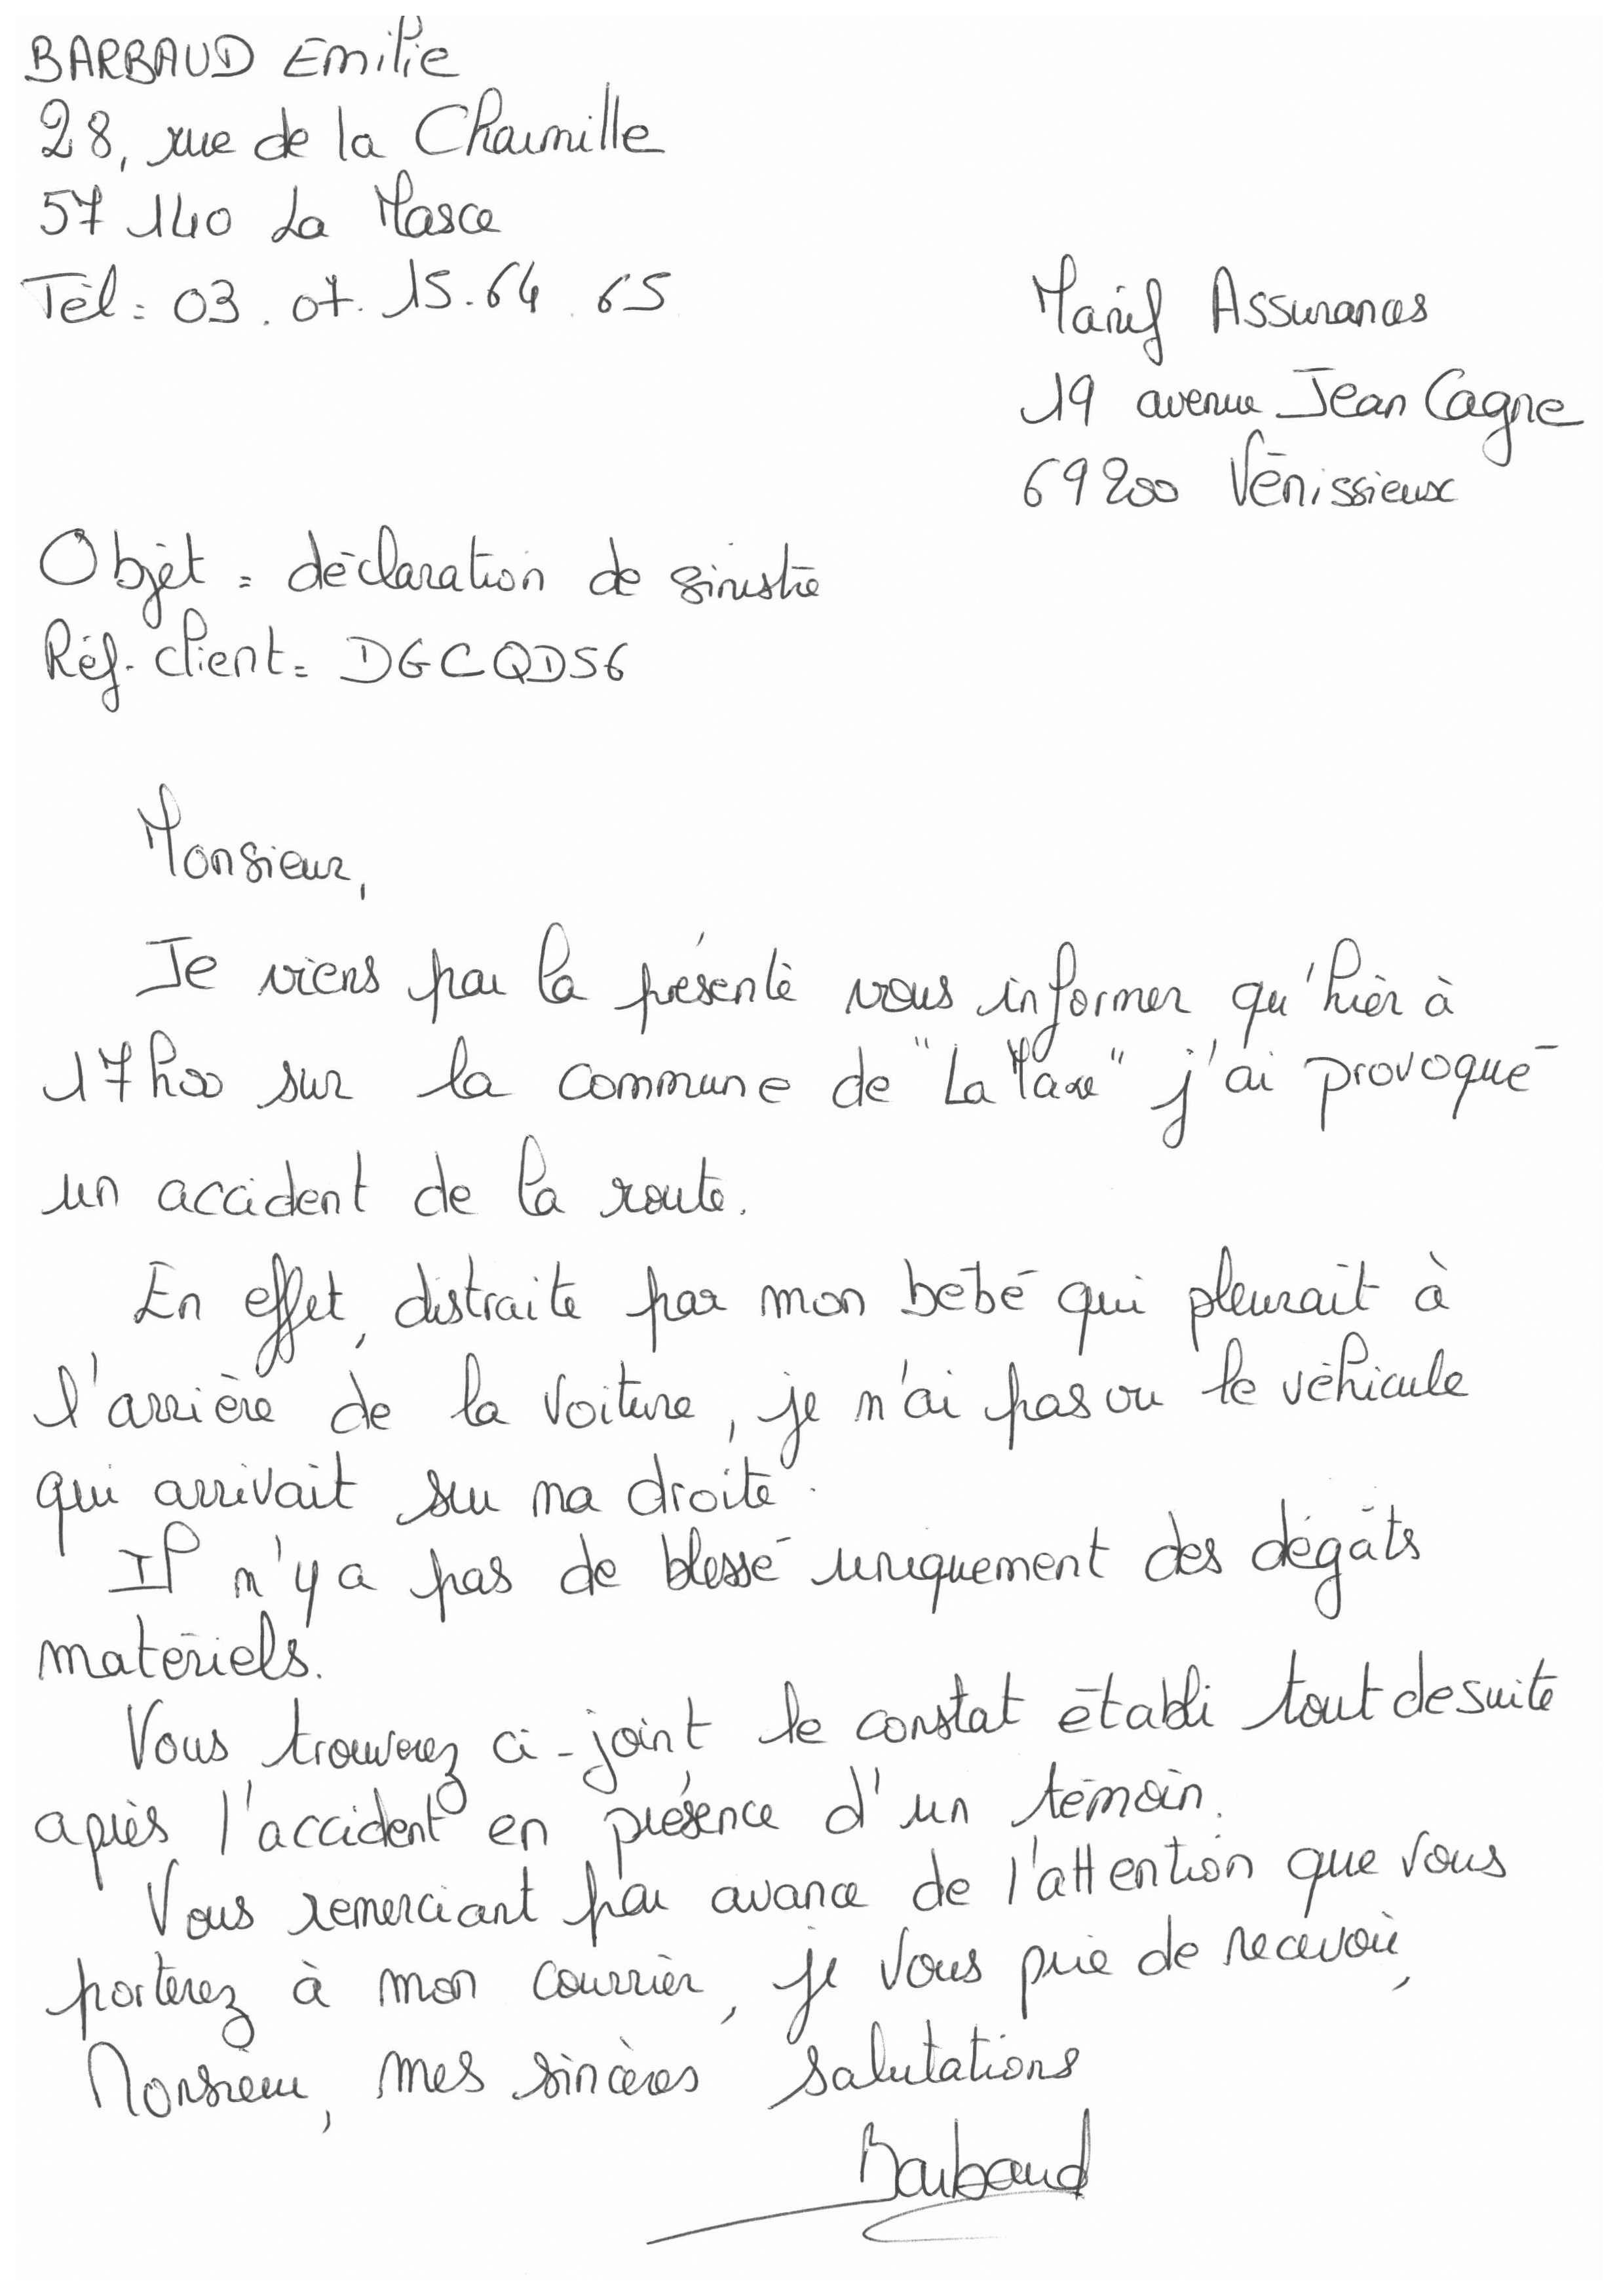 BARBAUD Emilie
28, rue de la Charmille
57 140 La Masce
Tél : 03. 07. 15. 64. 65
Marif Assurances
19 avenue Jean Cagne
69200 Vénissieux
Objet : déclaration de sinistre
Réf. client : DGCQDS6
Monsieur,
Je viens par la présente vous informer qu'hier à
17h00 sur la commune de "La Maxe" j'ai provoqué
un accident de la route.
En effet, distraite par mon bébé qui pleurait à
l'arrière de la voiture, je n'ai pas vu le véhicule
qui arrivait sur ma droite.
Il n'y a pas de blessé uniquement des dégâts
matériels.
Vous trouverez ci-joint le constat établi tout de suite
après l'accident en présence d'un témoin.
Vous remerciant par avance de l'attention que vous
porterez à mon courrier, je vous prie de recevoir,
Monsieur, mes sincères salutations
Barbaud